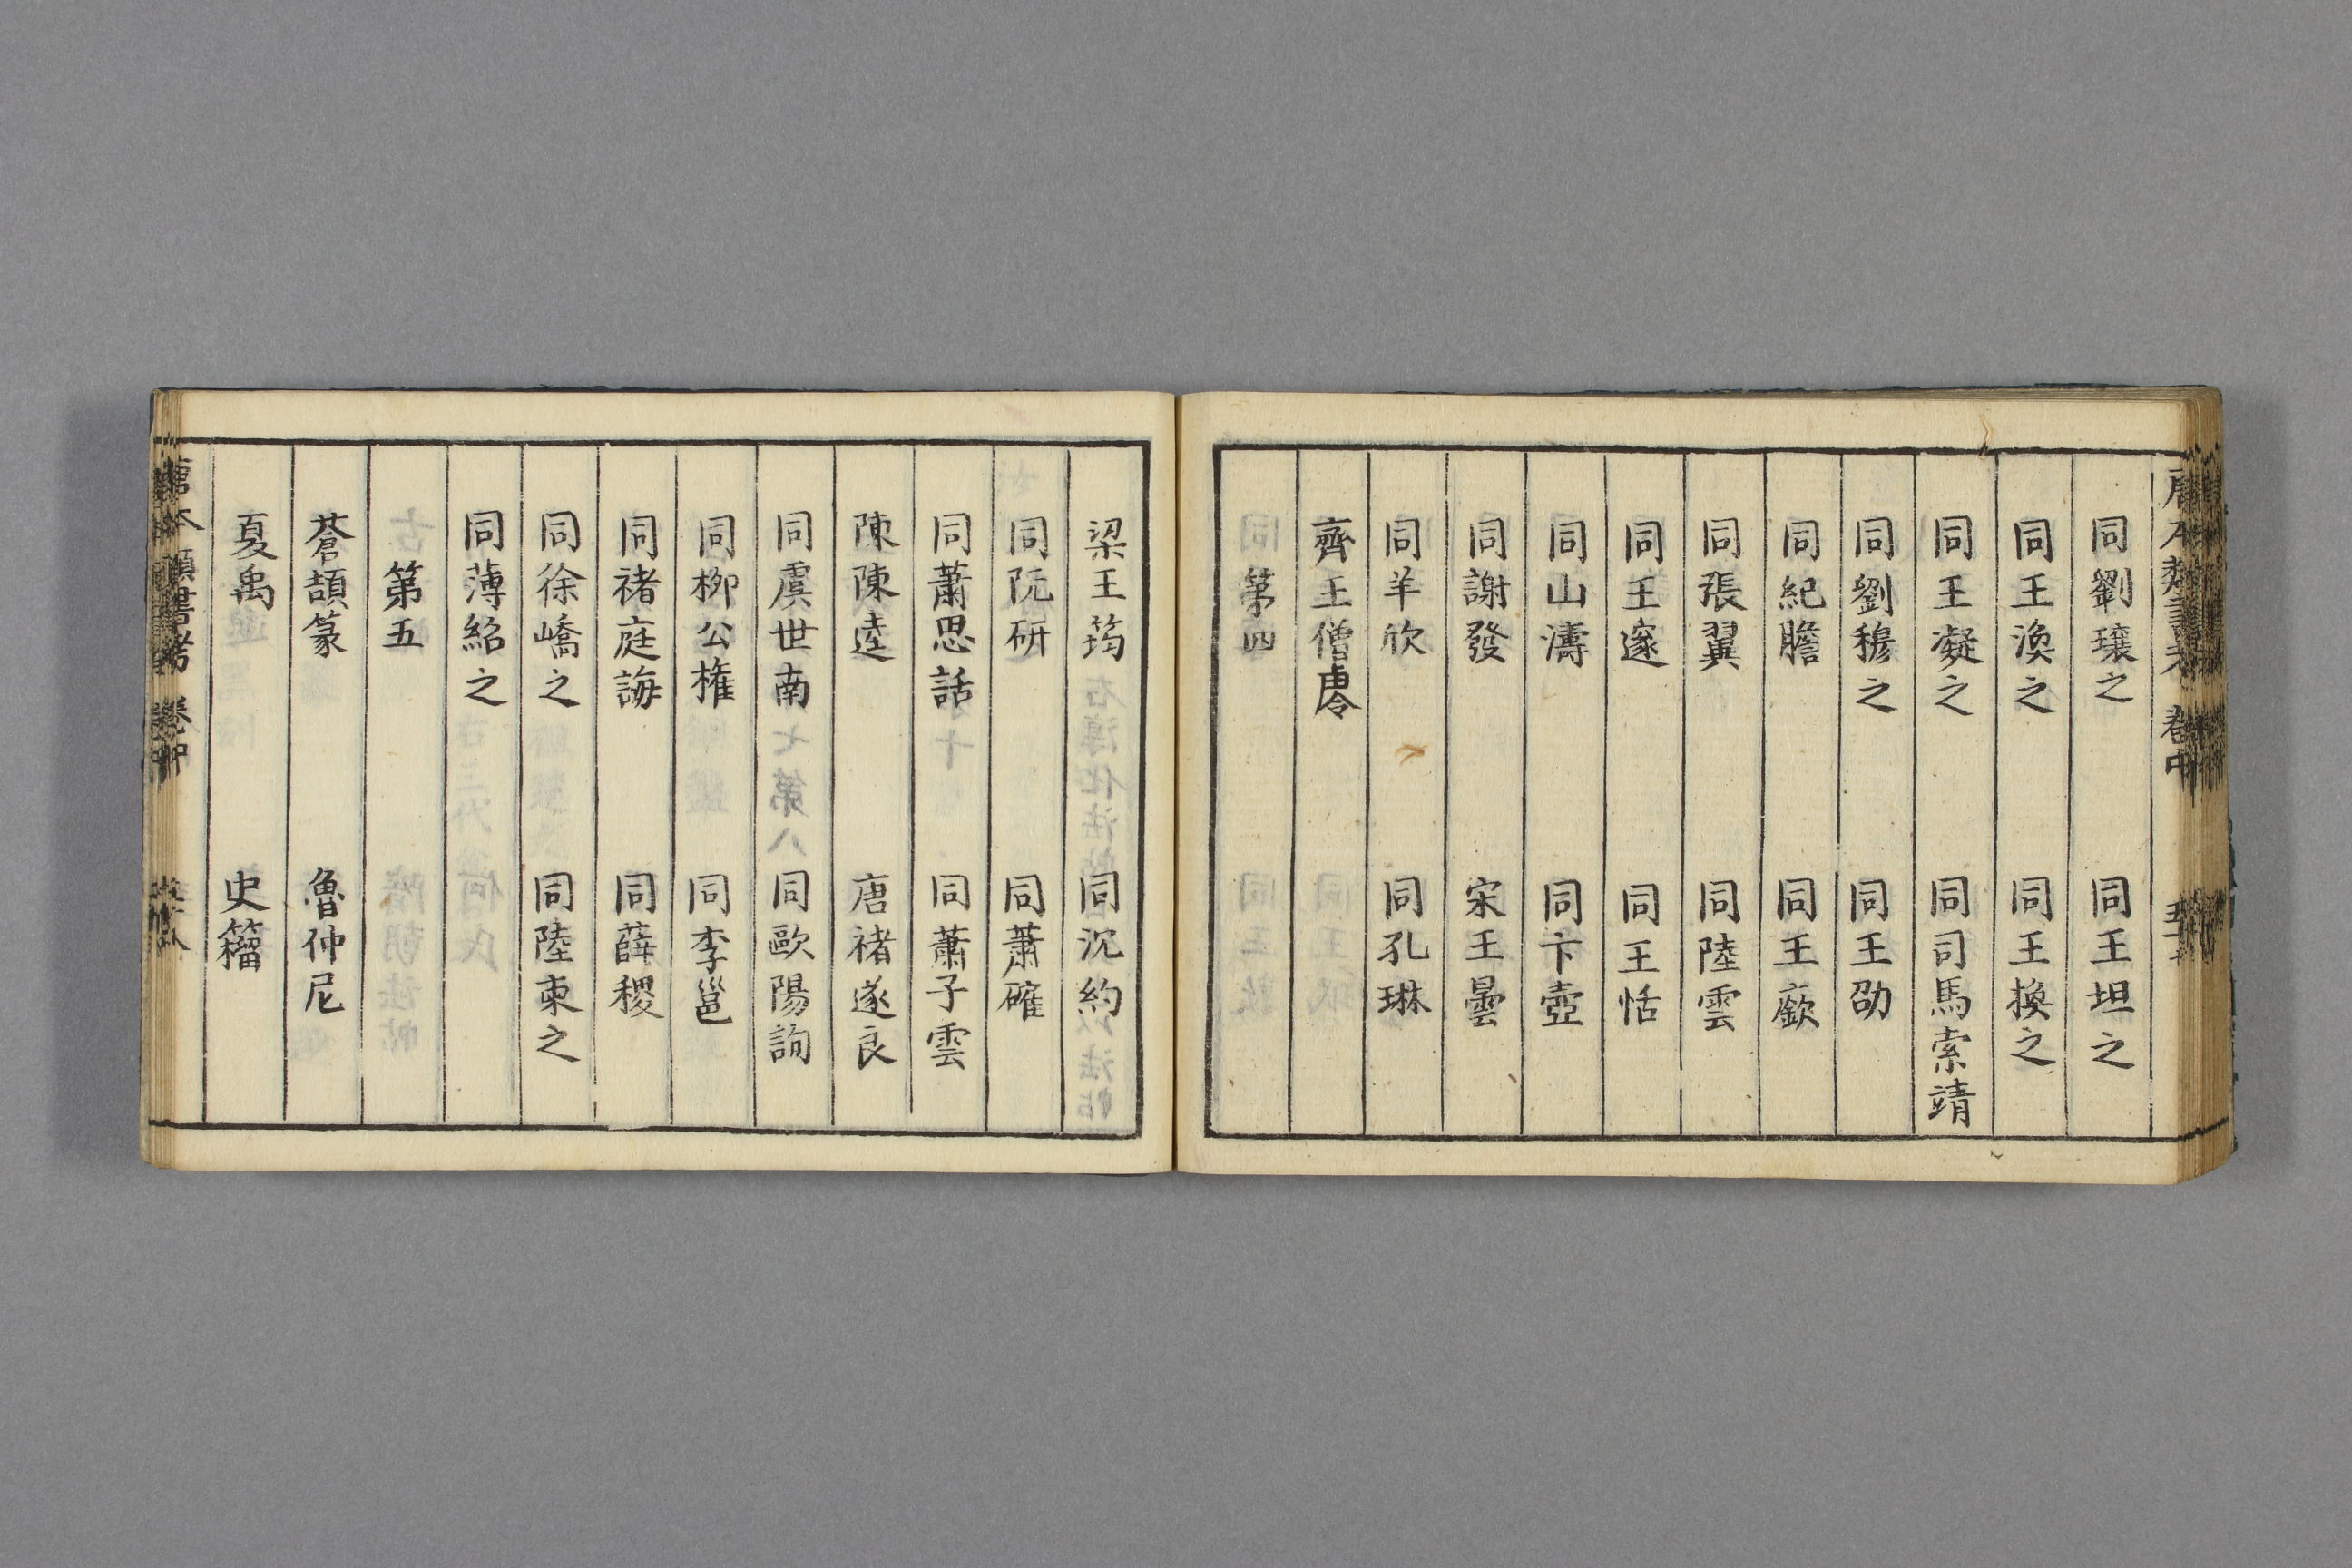 同劉瓌之 同王坦之
同王渙之 同王換之
同王凝之 同司馬索靖
同劉穆之 同王劭
同紀膽 同王廞
同張翼 同陸雲
同王邃 同王恬
同山濤 同卞壺
同謝發 宋王曇
同羊欣 同孔琳
齊王僧虔
第四
梁王筠 同沈約
同阮研 同蕭確
同蕭思話 同蕭子雲
陳陳逵 唐褚遂良
同虞世南 同歐陽詢
同柳公權 同李邕
同褚庭誨 同薛稷
同徐嶠之 同陸柬之
同薄紹之
第五
蒼頡篆 魯仲尼
夏禹 史籀
唐本類書考 卷中